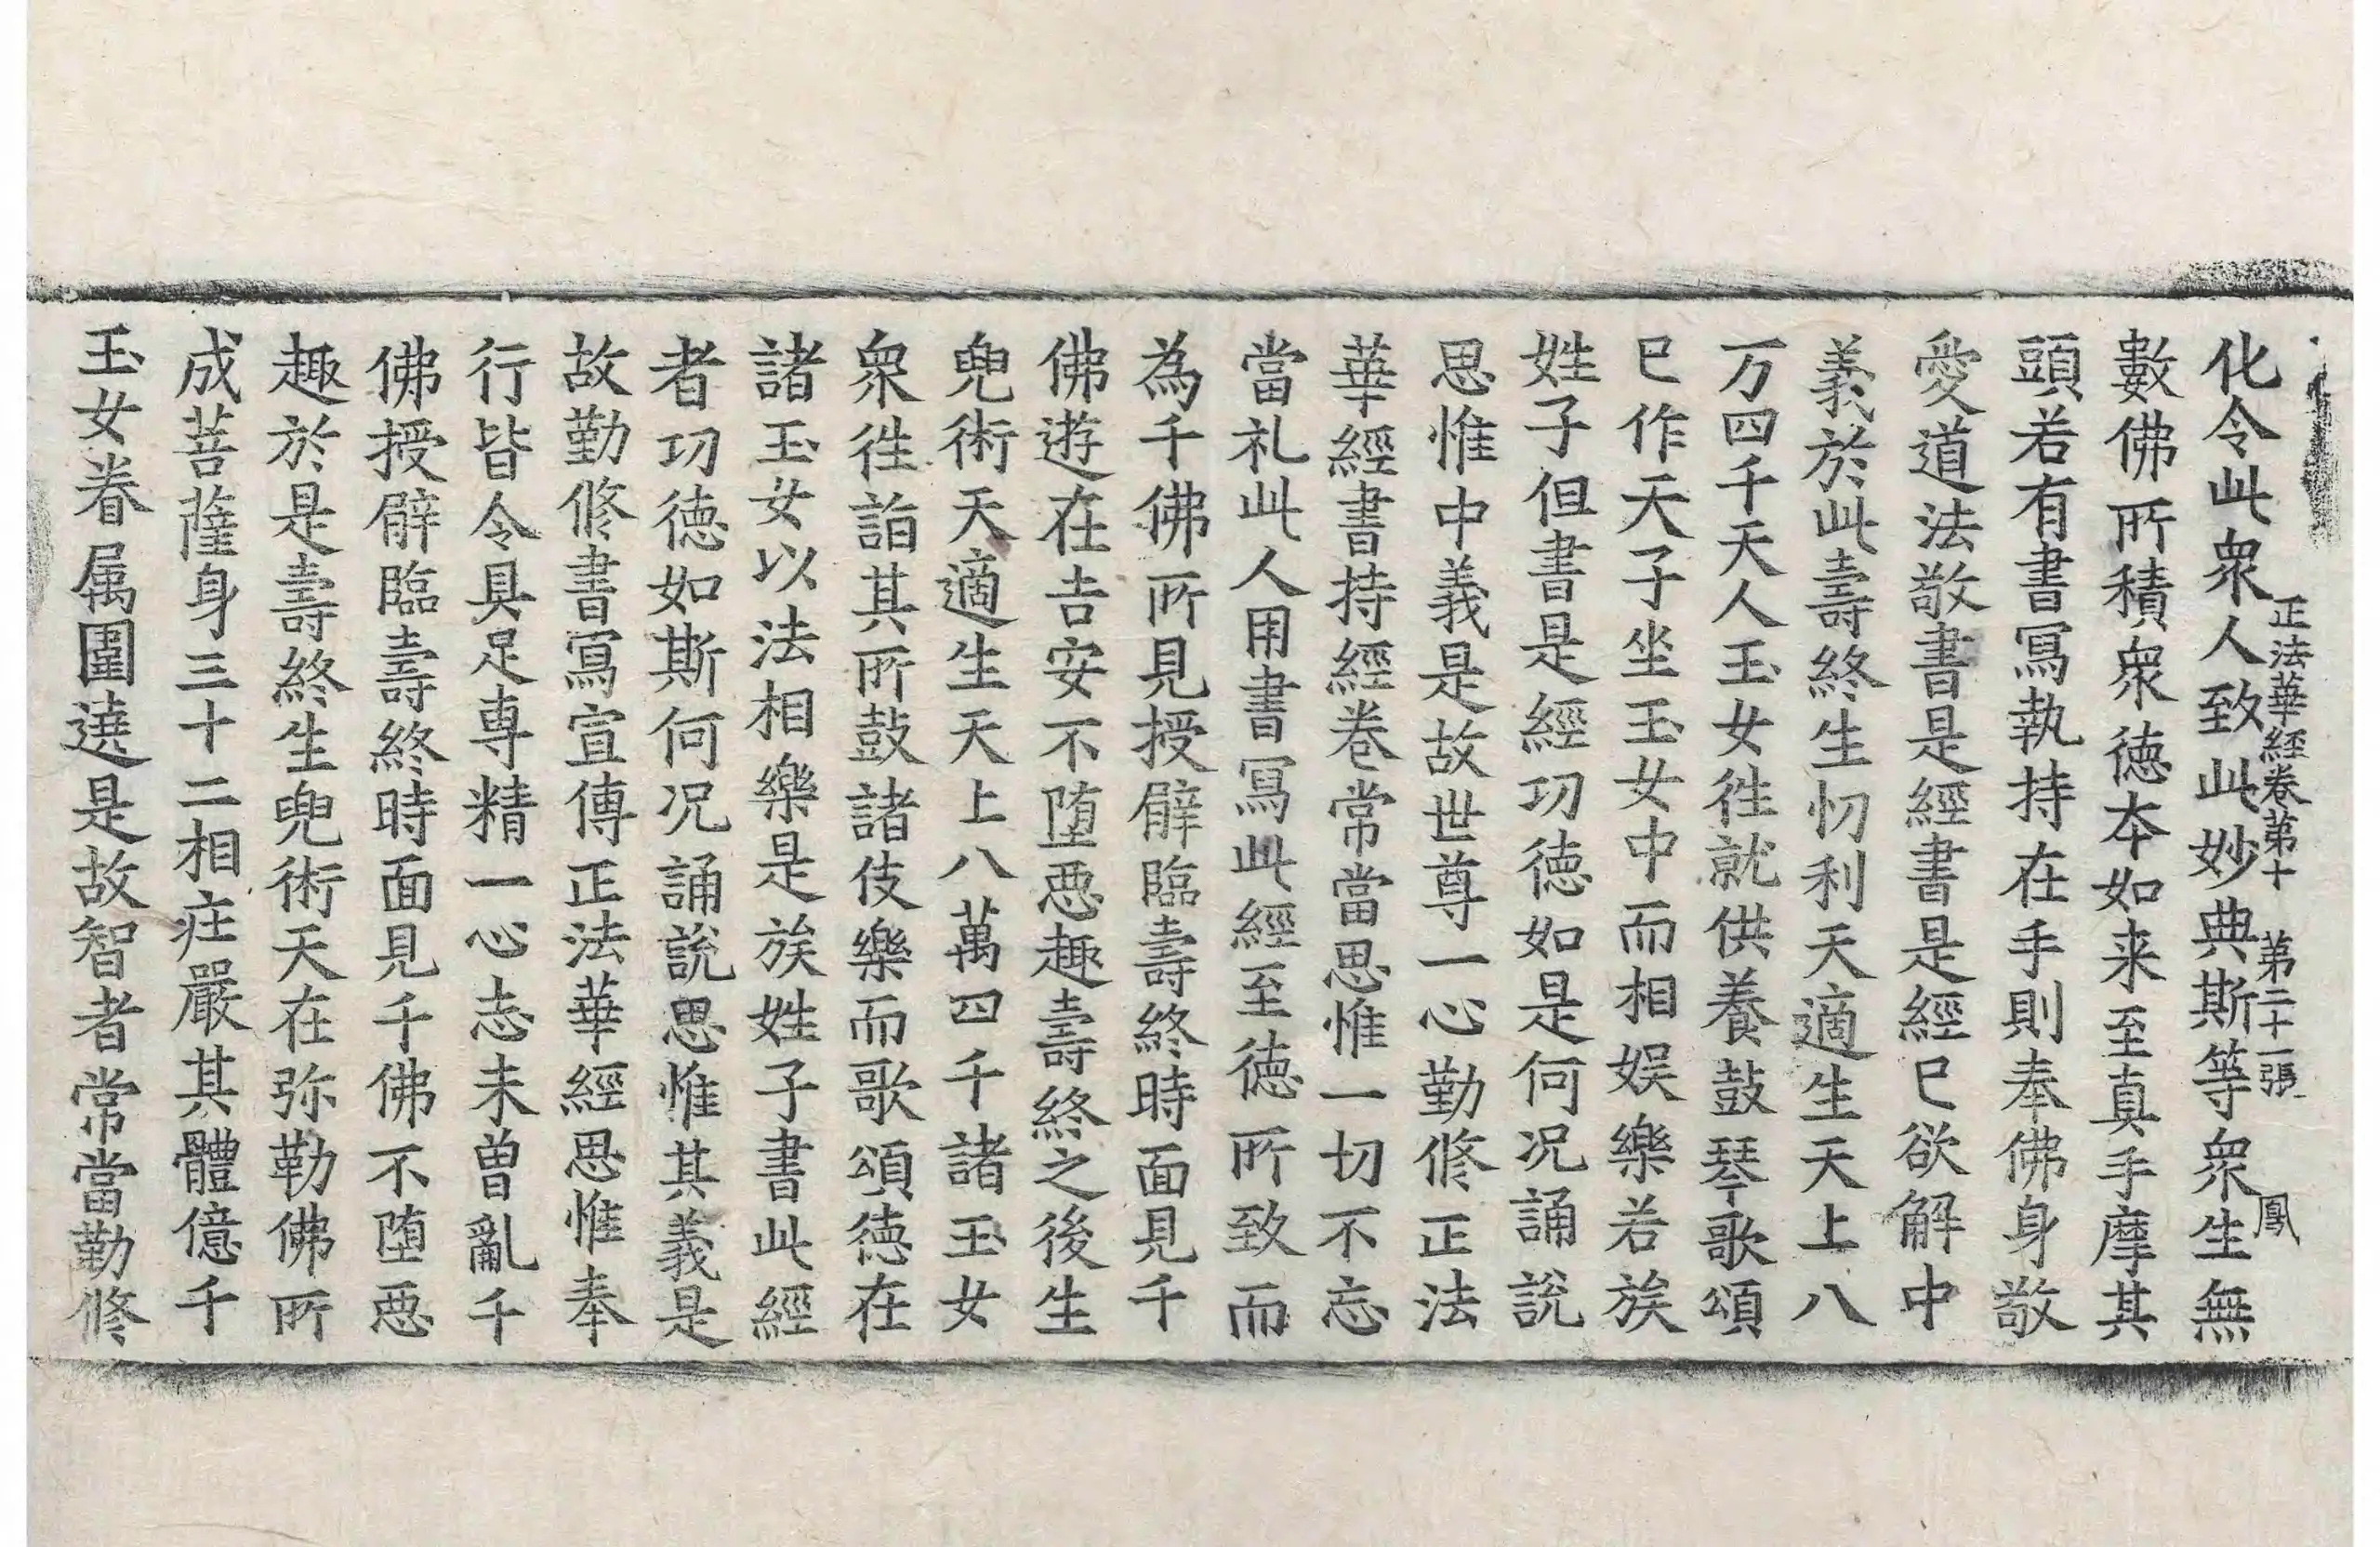 正法華經卷第十　第二十一張　鳳
化令此衆人致此妙典斯等衆生無
數佛所積衆徳本如来至真手摩其
頭若有書寫執持在手則奉佛身敬
愛道法敬書是經書是經已欲解中
義於此壽終生忉利天適生天上八
万四千天人玉女徃就供養鼓琴歌頌
已作天子坐玉女中而相娱樂若族
姓子但書是經功徳如是何况誦説
思惟中義是故世尊一心勤修正法
華經書持經卷常當思惟一切不忘
當礼此人用書寫此經至徳所致而
為千佛所見授臂臨壽終時面見千
佛遊在吉安不堕恶趣壽終之後生
兜術天適生天上八萬四千諸玉女
衆徃詣其所鼓諸伎樂而歌頌徳在
諸玉女以法相樂是族姓子書此經
者功徳如斯何况誦説思惟其義是
故勤修書寫宣傳正法華經思惟奉
行皆令具足専精一心志未曽亂千
佛授臂臨壽終時面見千佛不堕恶
趣於是壽終生兜術天在弥勒佛所
成菩薩身三十二相庄嚴其體億千
玉女眷属圍遶是故智者常當勤修